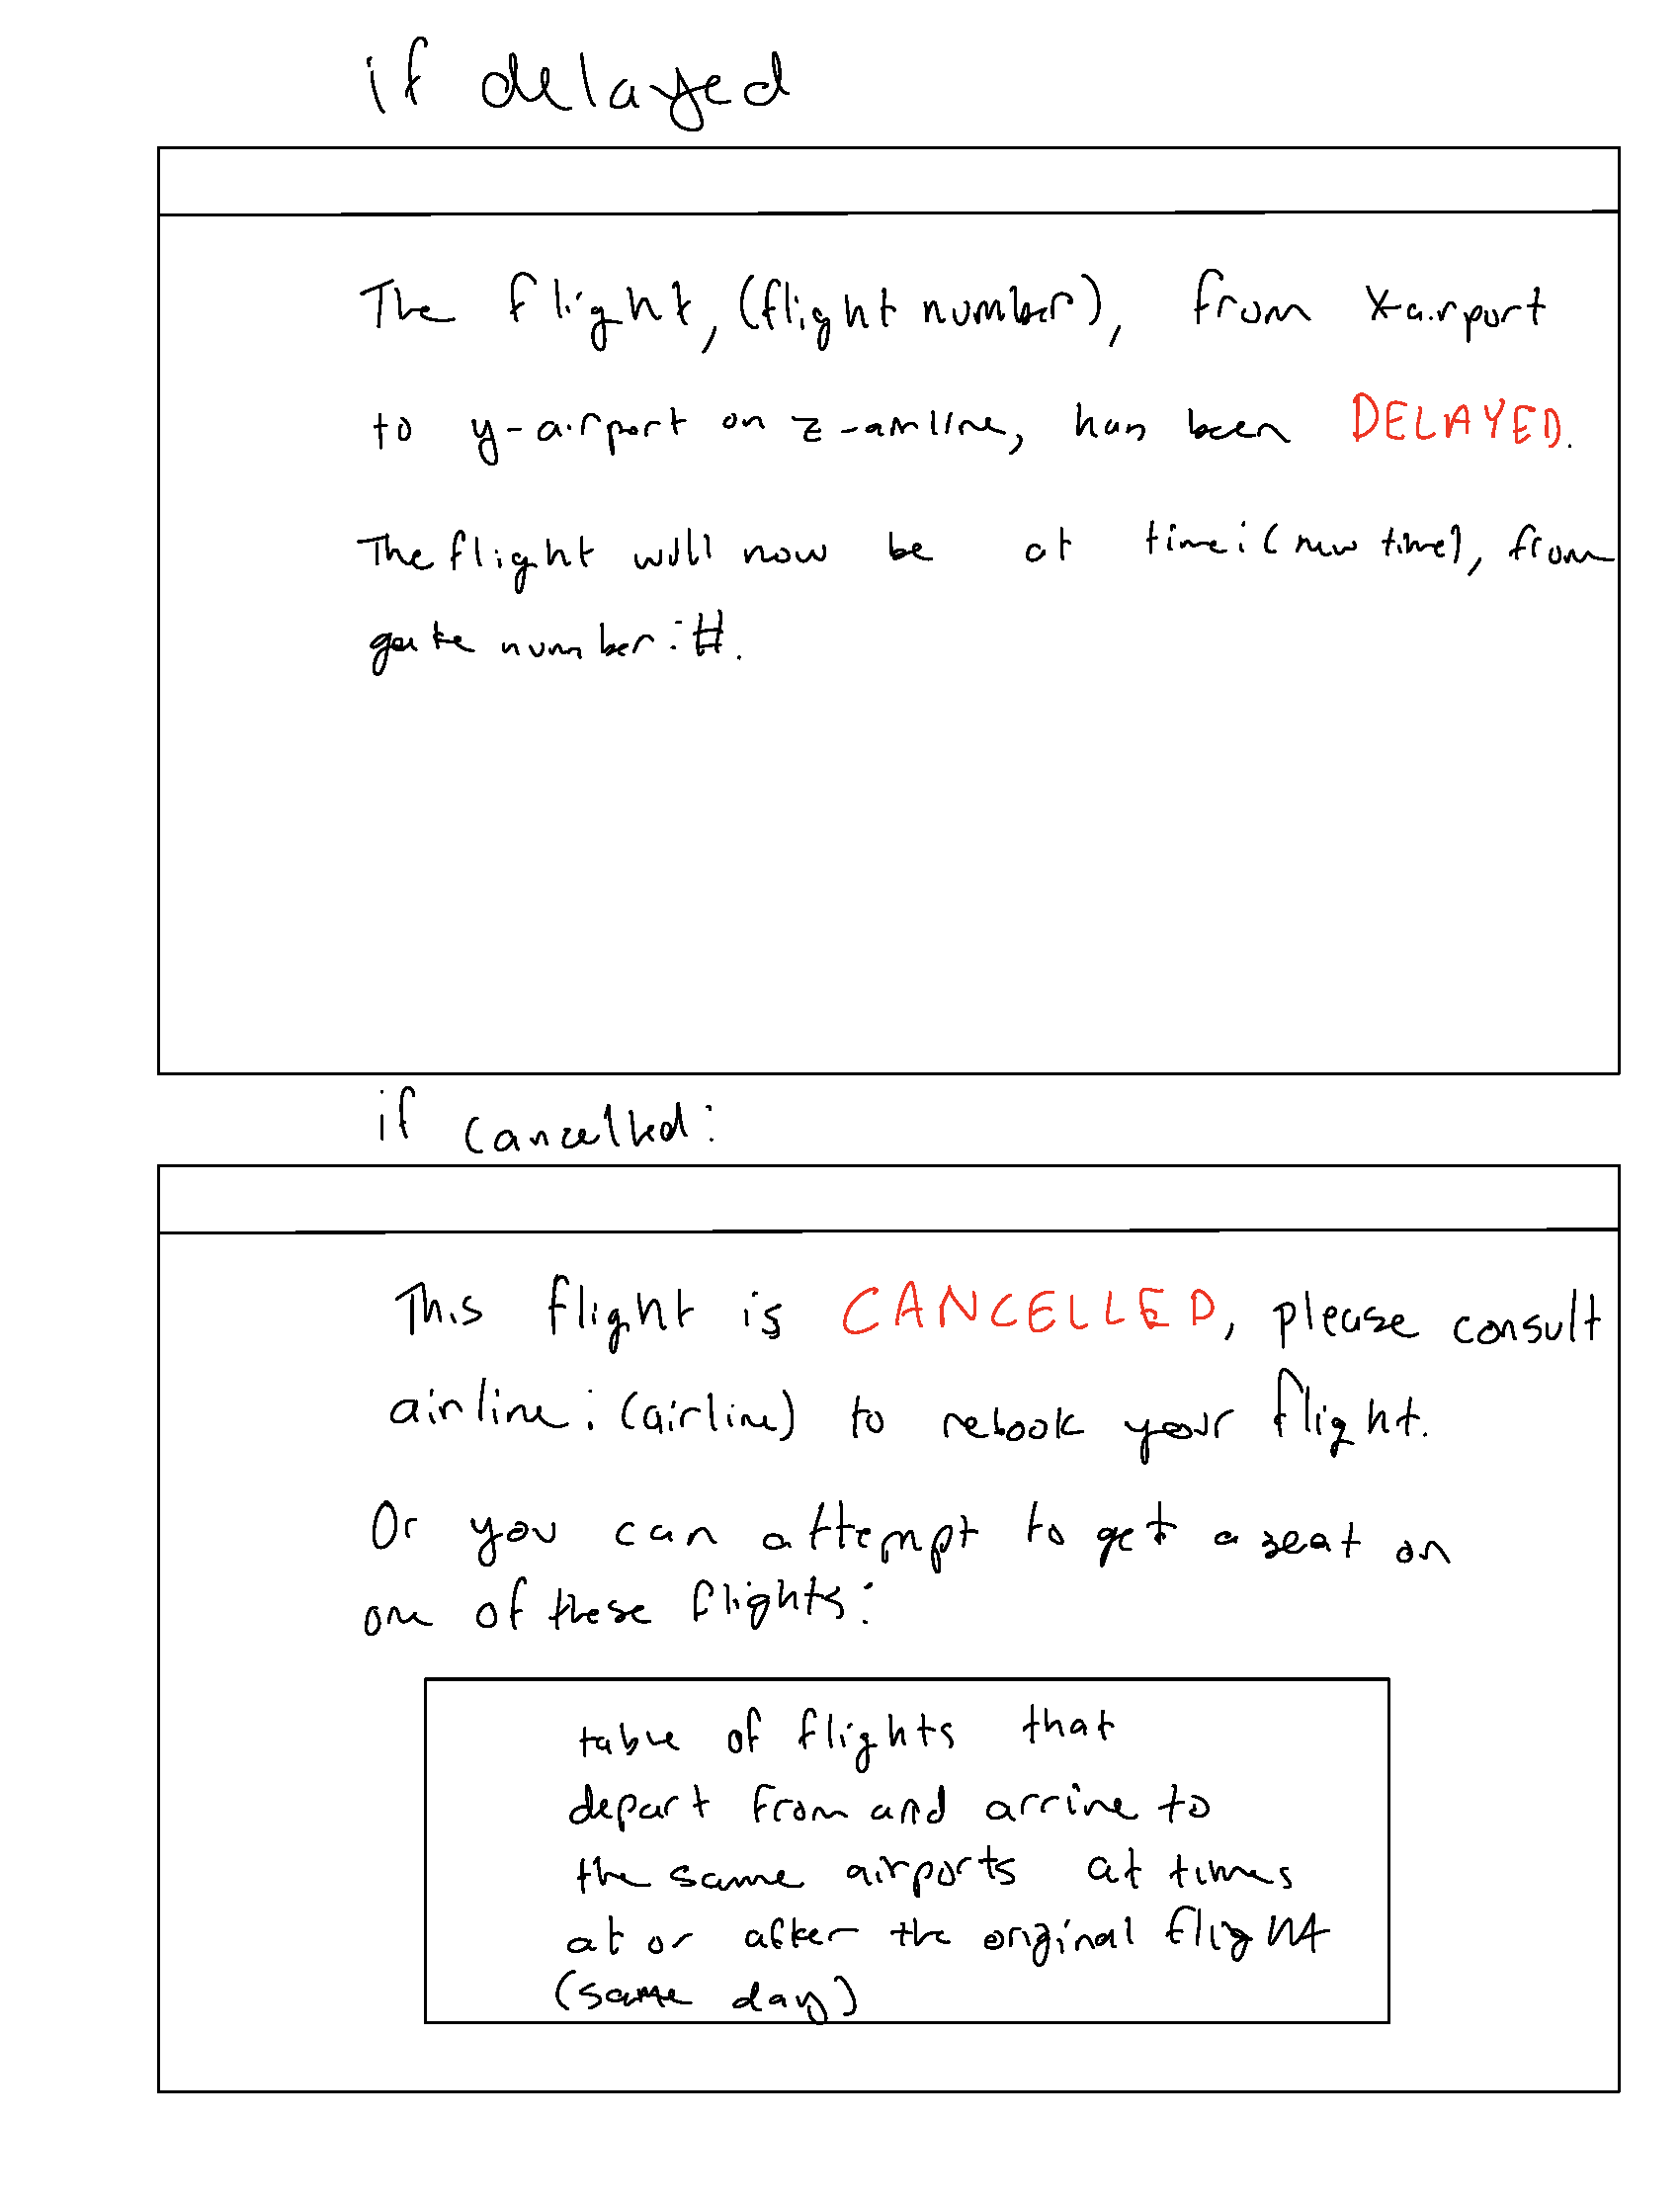 if delayed
The flight, (flight number), from X-airport
to y-airport on z-airline, has been DELAYED.
The flight will now be at time: (new time), from
gate number: #.
if cancelled:
This flight is CANCELLED, please consult
airline: (airline) to rebook your flight.
Or you can attempt to get a seat on
one of these flights:
table of flights that
depart from and arrive to
the same airports at times
at or after the original flight
(same day)